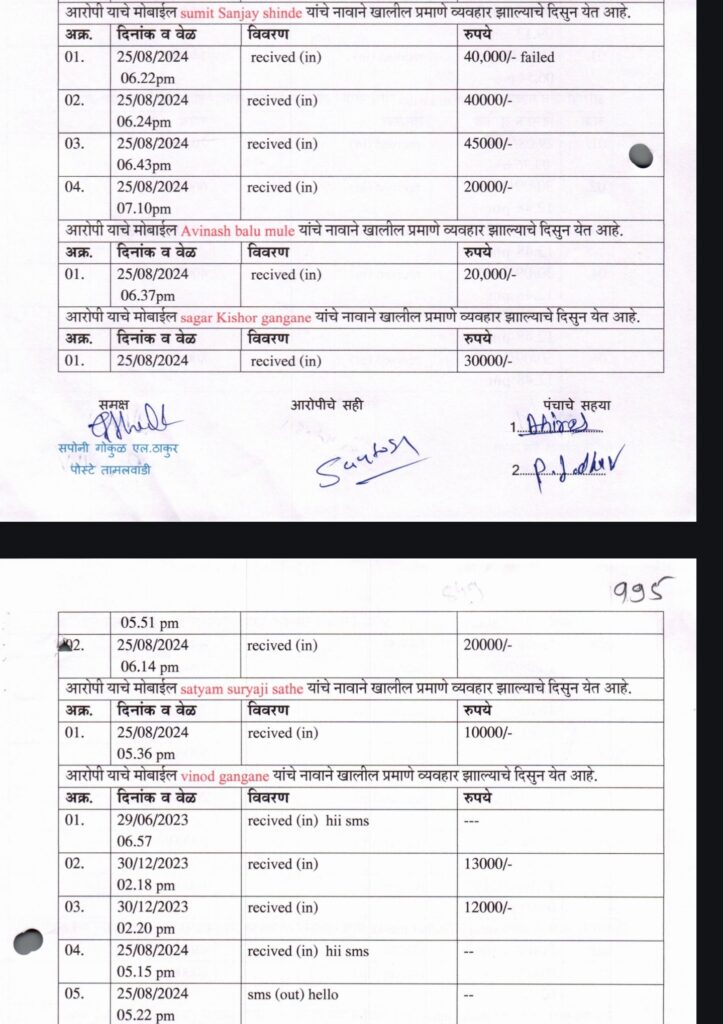 आरोपी याचे मोबाईल sumit Sanjay shinde यांचे नावाने खालील प्रमाणे व्यवहार झााल्याचे दिसुन येत आहे.
अक्र. दिनांक व वेळ विवरण रुपये
01. 25/08/2024 recived (in) 40,000/- failed
06.22pm
02. 25/08/2024 recived (in) 40000/-
06.24pm
03. 25/08/2024 recived (in) 45000/-
06.43pm
04. 25/08/2024 recived (in) 20000/-
07.10pm
आरोपी याचे मोबाईल Avinash balu mule यांचे नावाने खालील प्रमाणे व्यवहार झााल्याचे दिसुन येत आहे.
अक्र. दिनांक व वेळ विवरण रुपये
01. 25/08/2024 recived (in) 20,000/-
06.37pm
आरोपी याचे मोबाईल sagar Kishor gangane यांचे नावाने खालील प्रमाणे व्यवहार झााल्याचे दिसुन येत आहे.
अक्र. दिनांक व वेळ विवरण रुपये
01. 25/08/2024 recived (in) 30000/-
समक्ष आरोपीचे सही पंचाचे सहया
1.
सपोनी गोकुळ एल.ठाकुर
पोस्टे तामलवाडी
Santosh
2. P. Jadhav
995
05.51 pm
02. 25/08/2024 recived (in) 20000/-
06.14 pm
आरोपी याचे मोबाईल satyam suryaji sathe यांचे नावाने खालील प्रमाणे व्यवहार झााल्याचे दिसुन येत आहे.
अक्र. दिनांक व वेळ विवरण रुपये
01. 25/08/2024 recived (in) 10000/-
05.36 pm
आरोपी याचे मोबाईल vinod gangane यांचे नावाने खालील प्रमाणे व्यवहार झााल्याचे दिसुन येत आहे.
अक्र. दिनांक व वेळ विवरण रुपये
01. 29/06/2023 recived (in) hii sms ---
06.57
02. 30/12/2023 recived (in) 13000/-
02.18 pm
03. 30/12/2023 recived (in) 12000/-
02.20 pm
04. 25/08/2024 recived (in) hii sms --
05.15 pm
05. 25/08/2024 sms (out) hello --
05.22 pm